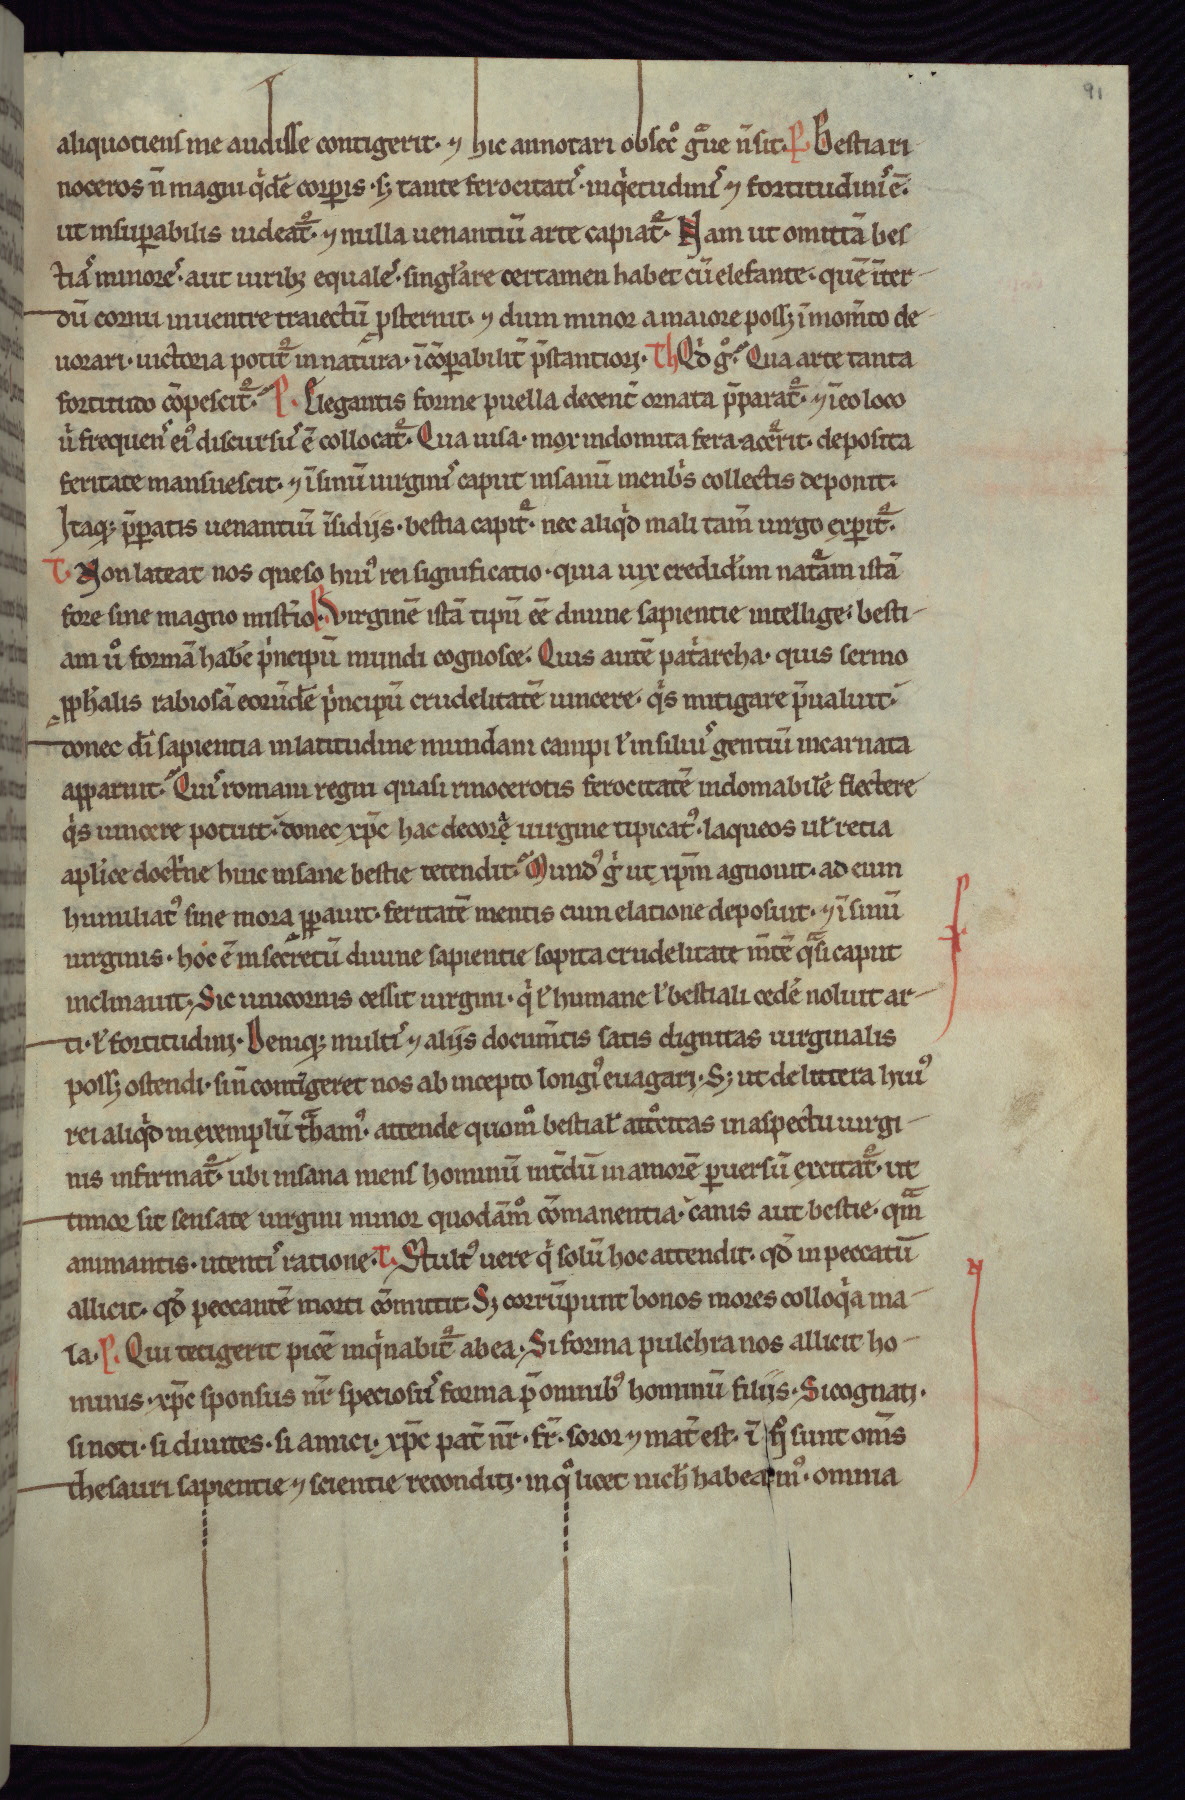 91
aliquotiens me audisse contigerit· ⁊ hic annotari obsecͦ gͣue n̄ sit· P. Bestia ri
noceros n̄ magni qͥdē corꝑis· sꝫ tante ferocitatiˢ· inqͥetudiniˢ ⁊ fortitudiniˢ ē·
ut insuꝑabilis uideat᷑· ⁊ nulla uenantiū arte capiat᷑· Nam ut omittā bes
tiaˢ minoreˢ· aut uiribꝫ equaleˢ· singl̓are certamen habet cū elefante· quē īter
dū cornu in uentre traiectū ꝓsternit· ⁊ dum minor a maiore possꝫ ī mom̄to de
uorari· uictoria potit᷑ in natura· īcōꝑabilit̓ p̄stantiorꝫ· Th Qd̓ gͦ· Qua arte tanta
fortitudo cōpescit᷑· P. Elegantis forme puella decent̓ ornata p̄parat᷑· ⁊ ī eo loco
uͥ frequenˢ eiꝰ discursuˢ ē collocat᷑· Qua uisa· mox indomita fera acc̄rit· deposita
feritate mansuescit· ⁊ ī sinū uirginiˢ caput insanū menbͥs collectis deponit·
Itaqꝫ p̄ꝑatis uenantiū īsidiis· bestia capit᷑· nec aliqͥd mali tam̄ uirgo exꝑit᷑·
T. Non lateat nos queso huiꝰ rei significatio· quia uix credidim̄ natͣam istā
fore sine magno mist̓io· P. Virginē istā tipū eē diuine sapientie intellige· besti
am uͦ formā habē pͥncipū mundi cognosce· Quis autē patͥarcha· quis sermo
ꝓph̓alis rabiosā eorūdē pͥncipū crudelitatē uincere· qͥs mitigare p̄ualuit·
donec dī sapientia in latitudine mundani campi l̓ in siluiˢ gentiū incarnata
apparuit· Quiˢ romani regni quasi rinocerotis ferocitatē indomabilē flectere
qͥs uincere potuit· donec xp̄c hac decorę uirgine tipicatꝰ· laqueos ul̓ retia
apl̓ice doctͥne huic insane bestie tetendit· Mundꝰ gͥ ut xp̄m agnouit· ad eum
humiliatꝰ sine mora ꝓꝑauit· feritatē mentis cum elatione deposuit· ⁊ ī sinū
uirginis· hoc ē in secretū diuine sapientie sopita crudelitate m̄tē qͣsi caput
inclinauit· Sic unicornis cessit uirgini· qͥ l̓ humane l̓ bestiali cedē noluit ar
ti· l̓ fortitudinꝫ· Deniqꝫ multiˢ ⁊ aliis docum̄tis satis dignitas uirginalis
possꝫ ostendi· si n̄ contigeret nos ab incepto longiꝰ euagarꝫ· Sꝫ ut de littera huiꝰ
rei aliqͥd in exemplū tͣhamꝰ· attende quomͦ bestial̓ atͦcitas in aspectu uirgi
nis infirmat᷑· ubi insana mens hominū int̓dū in amorē ꝑuersū excitat᷑· ut
timor sit sensate uirgini minor quodāmͦ cōmanentia· canis aut bestie· qͣm
animantis· utentiˢ ratione· T. Stultꝰ uere qͥ solū hoc attendit· qd̓ in peccatū
allicit· qd̓ peccantē morti cōmittit· Sꝫ corrūpunt bonos mores colloqͥa ma
la· P. Qui tetigerit picē inqͥnabit᷑ ab ea· Si forma pulchra nos allicit ho
minis· xp̄c sponsus nr̄ speciosuˢ forma p̄ omnibꝰ hominū filiis· Si cognatꝫ·
si noti· si diuites· si amici· xp̄c pat̓ nr̄· fr̄· soror ⁊ mat̓ est· ī qͦ sunt oms̄
thesauri sapientie ⁊ scientie reconditꝫ· in qͦ licet nich̓ habeamꝰ· omnia